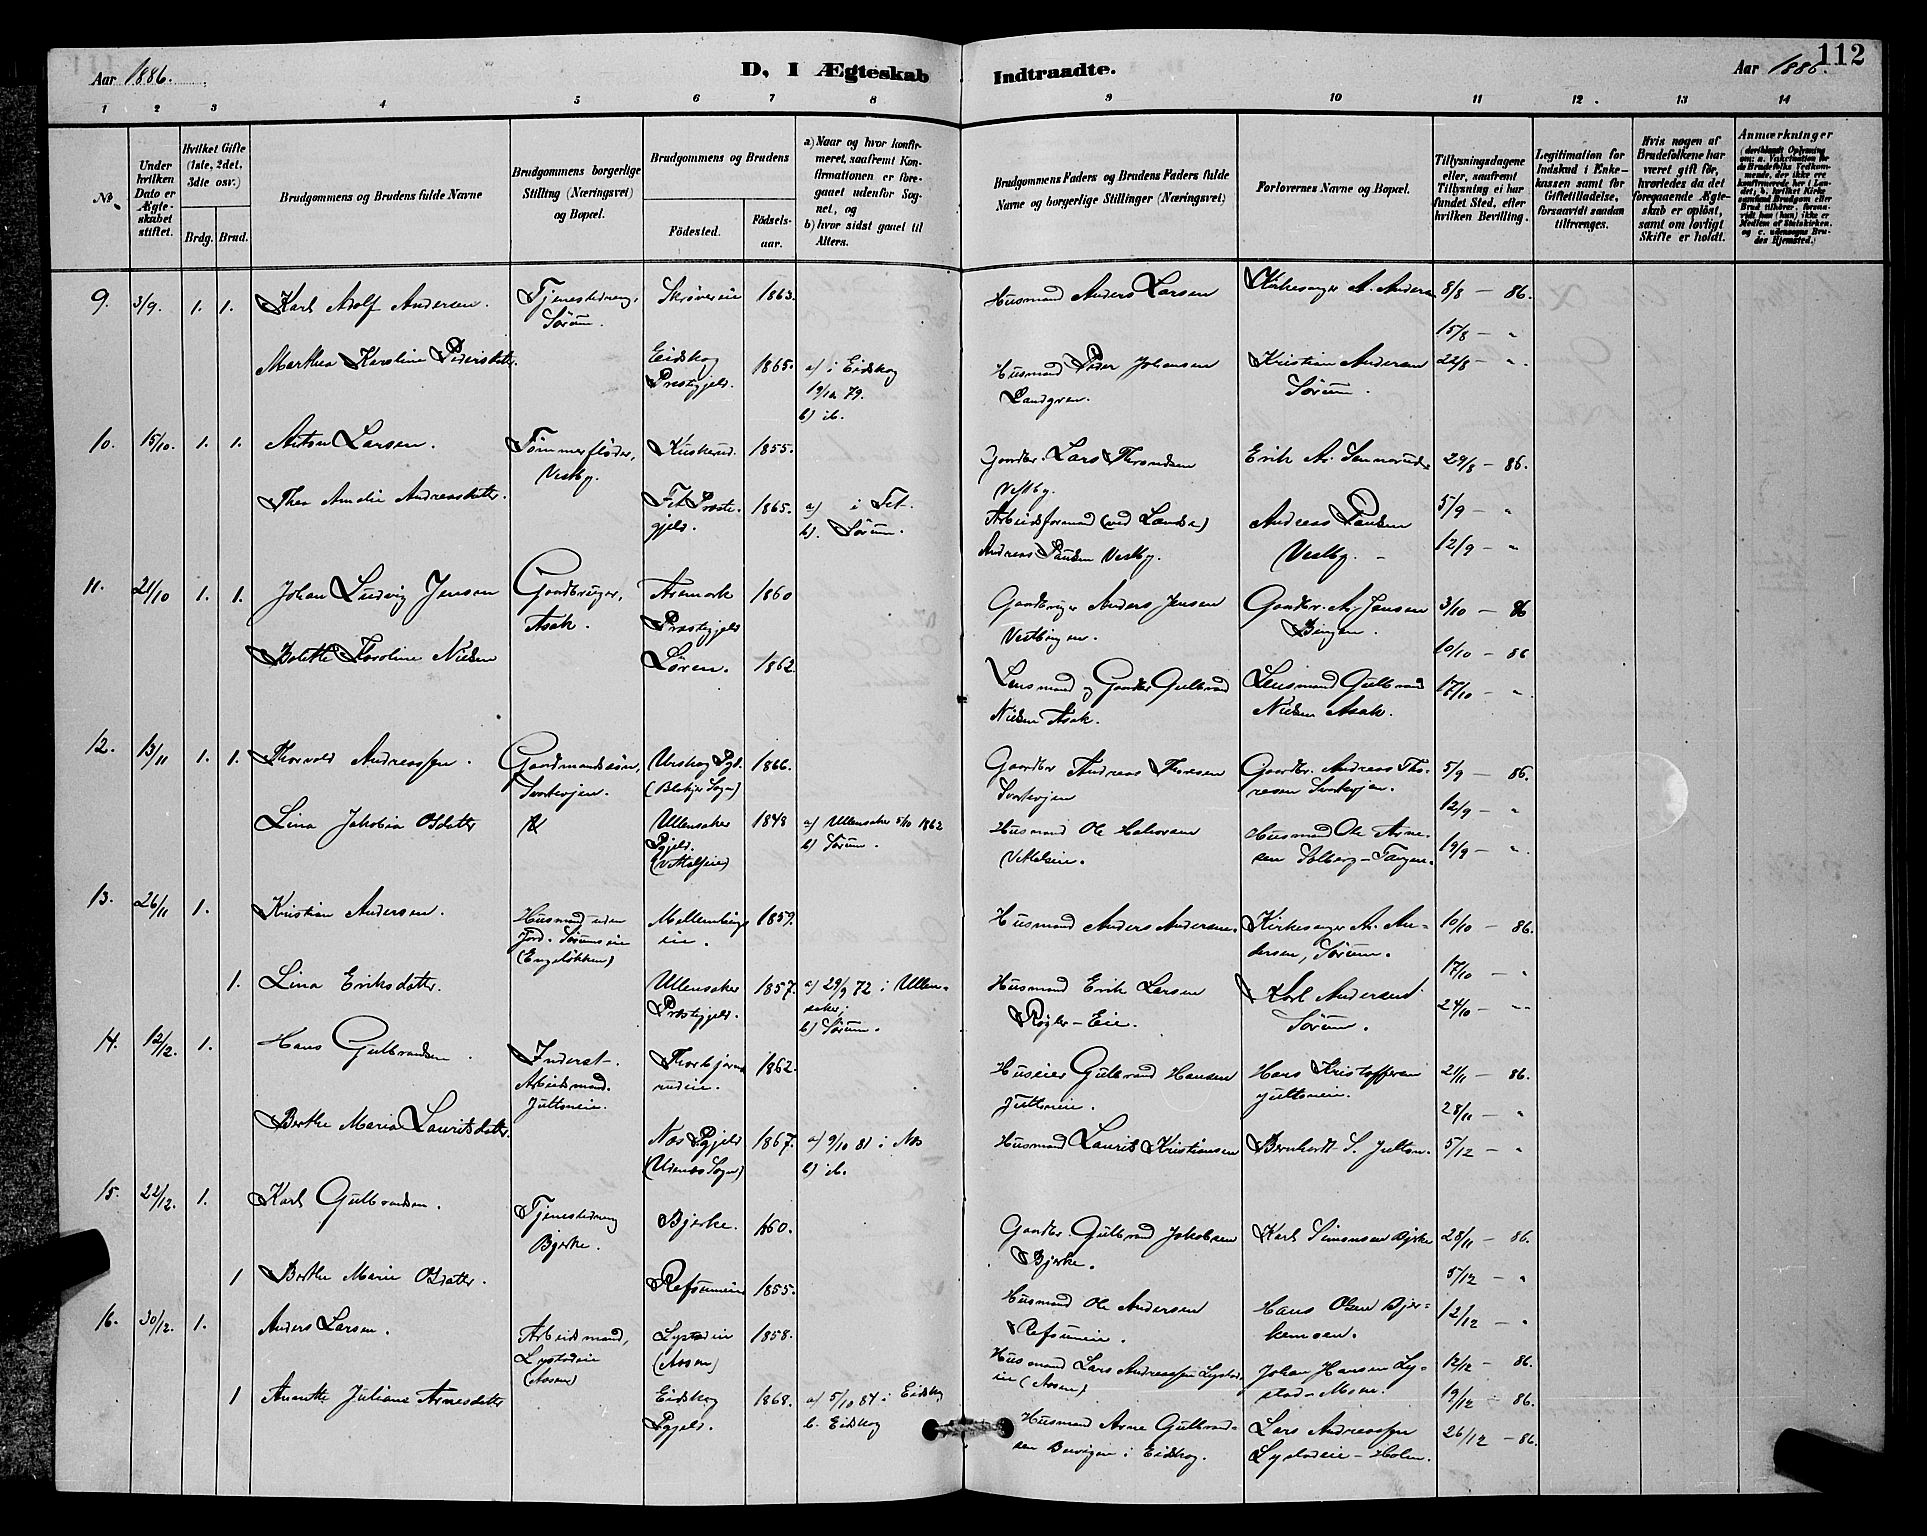 112
Aar 1886.
D, I Ægteskab
Indtraadte.
Aar 1886.
1 2 3 4 5 6 7 8
9 10 11 12 13 14
No.
Under hvilken Dato er Ægteskabet stiftet.
Hvilket Gifte (1ste, 2det, 3die osv.)
Brdg. Brud.
Brudgommens og Brudens fulde Navne
Brudgommens borgerlige Stilling (Næringsvei) og Bopæl.
Brudgommens og Brudens
Födested.
Födselsaar.
a) Naar og hvor konfirmeret, saafremt Konfirmationen er foregaaet udenfor Sognet, og
b) hvor sidst gaaet til Alters.
Brudgommens Faders og Brudens Faders fulde Navne og borgerlige Stillinger (Næringsvei)
Forlovernes Navne og Bopæl.
Tillysningsdagene eller, saafremt Tillysning ei har fundet Sted, efter hvilken Bevilling.
Legitimation for Indskud i Enkekassen samt for Giftetilladelse, forsaavidt saadan tiltrænges.
Hvis nogen af Brudefolkene har været gift för, hvorledes da det foregaaende Ægteskab er oplöst, samt om lovligt Skifte er holdt.
Anmærkninger
9. 3/9. 1. 1. Karl Adolf Andersen. Tjenestedreng, Sørum. 1863. Husmand Anders Larsen Kirkesanger A. Andersen 8/8 — 86.
15/8 — "
Marthea Karoline Pedersdatter. Eidskog Præstegjeld. 1865. a) i Eidskog 19/10 79. b) ib. Husmand Peder Johansen Kristian Andersen Sørum. 22/8 — "
10. 15/10. 1. 1. Anton Larsen. Tømmerfløder, Vesby. Kuskerud. 1855. Gaardbr. Lars Throndsen Vestby. Erik A. 29/8 — 86.
Thea Amalie Andreasdatter. Fet Præstegjeld. 1865. a) i Fet. b). Sørum. Arbeidsformand Andreas Paulsen Vestby. Andreas Paulsen Vestby. 5/9 — "
12/9 — "
11. 21/10 1. 1. Johan Ludvig Jensen Gaardbruger, Asak. Aremark Præstegjeld 1860 Gaardbruger Anders Jensen Gaardbr. A. Jensen Bingen. 3/10 — 86
10/10 — 86
Bolette Karoline Nielsen 1862. Lensmand og Gaardbr. Gulbrand Nielsen Asak. Lensmand Gulbrand Nielsen Asak. 17/10 — "
12. 13/11 1. 1. Thorvald Andreassen. Gaardmandssøn, Urskog Pgd. (Blakjer Sogn) 1866. Gaardbr Andreas Thoresen Gaardbr. Andreas Thoresen 5/9 — 86.
12/9 — "
Lina Jakobia Olsdatter Ullensaker Pgjeld. 1848 a) Ullensaker 5/10 1862 b) Sørum. Husmand Ole Halvorsen Husmand Ole Arnesen Solberg-Tangen. 19/9 — "
13. 26/11 1. Kristian Andersen. Husmand uden Jord. Sørumseie (Engeløkken) 1859. Husmand Anders Andersen. Kirkesanger A. Andersen, Sørum. 10/10 — 86.
17/10 — "
1. Lina Eriksdatter. Ullensaker Præstegjeld. 1857. a) 29/9 72 i Ullensaker; b) Sørum. Husmand Erik Larsen Røgler-Eie. Karl Andersen Sørum. 24/10 — "
14. 12/12. 1. Hans Gulbrandsen. Inderst. Arbeidsmand. Jultoneie. Thorbjørnrudeie. 1862. Huseier Gulbrand Hansen Jultoneie. Hans Kristoffersen Jultoneie. 21/11 — 86.
28/11 — "
Berthe Maria Lauritsdatter. Næs Pgjeld (Udenæs Sogn) 1867. a) 9/10 81 i Næs b) ib. Husmand Laurits Kristiansen Bernhardt S. Julton. 5/12 — "
15. 22/12. 1. Karl Gulbrandsen. Tjenestedreng Bjerke. Bjerke. 1860. Gaardbr Gulbrand Jakobsen Bjerke. Karl Simensen Bjerke 28/11 — 86.
5/12 — "
1 Berthe Marie Olsdatter. Refsumeie 1855. Husmand Ole Andersen Refsumeie. Hans Olsen Bjerkemoen. 12/12 — "
16. 30/12. 1. Anders Larsen. Arbeidsmand, Lystadeie (Aasen) Lystadeie (Aasen) 1858. Husmand Lars Andreassen Lystadeie (Aasen) Johan Hansen Lystad-Moen. 12/12 — 86.
19/12 — 86.
1 Anette Juliane Arnesdatter Eidskog Pgjeld. 1868. a) 5/10 84 i Eidskog b. Eidskog Husmand Arne Gulbrandsen i Eidskog. Lars Andreassen Lystadeie-Holen. 26/12 — 86.